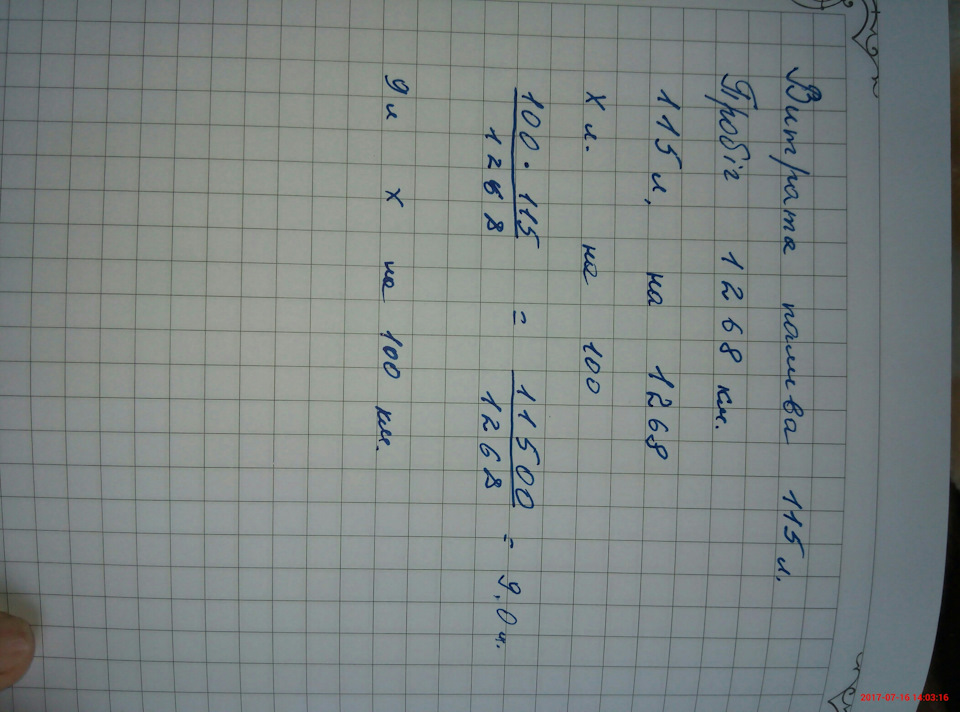 Витрата палива 115 л.
Пробіг 1268 км.
115 л. на 1268
Х л. на 100
100 · 115 / 1268 = 11500 / 1268 = 9,0 л.
9 л х на 100 км.
2017-07-16 14:03:16